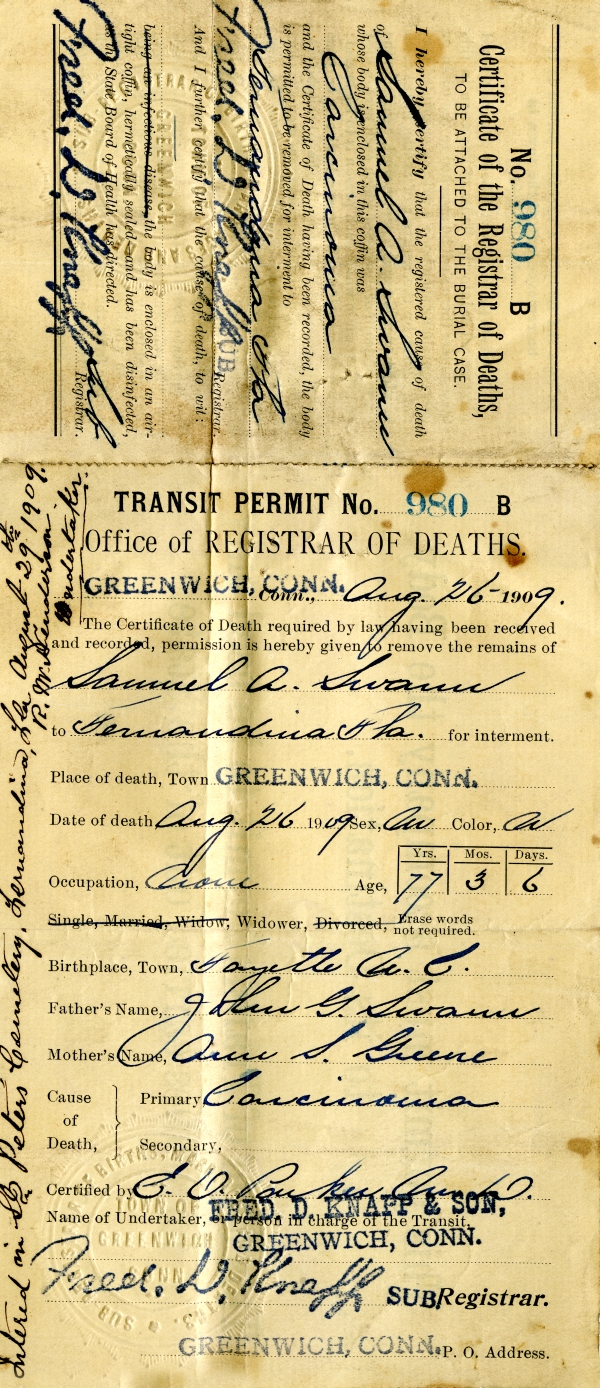 No. 980 B
Certificate of the Registrar of Deaths,
TO BE ATTACHED TO THE BURIAL CASE.
I hereby certify that the registered cause of death
of Samuel A. Swann
whose body is enclosed in this coffin was
Carcinoma
and the Certificate of Death having been recorded, the body
is permitted to be removed for interment to
Fernandina Fla
Fred. D. Knapp SUB Registrar.
And I further certify that the cause of death, to wit:
being an infectious disease, the body is enclosed in an air-
tight coffin, hermetically sealed and has been disinfected,
as the State Board of Health has directed.
Fred. D. Knapp Sub Registrar.
TRANSIT PERMIT No. 980 B
Office of REGISTRAR OF DEATHS.
GREENWICH, CONN. Conn., Aug. 26 1909.
The Certificate of Death required by law having been received
and recorded, permission is hereby given to remove the remains of
Samuel A. Swann
to Fernandina Fla. for interment.
Place of death, Town GREENWICH, CONN.
Date of death Aug. 26 1909 Sex, M Color, W
Yrs. Mos. Days.
Occupation, None Age, 77 3 6
Single, Married, Widow, Widower, Divorced, Erase words
not required.
Birthplace, Town, Fayette N. C.
Father's Name, John G. Swann
Mother's Name, Ann S. Greene
Cause of Death, Primary Carcinoma
Secondary,
Certified by E. O. Parker M.D.
Name of Undertaker, or person in charge of the Transit.
FRED. D. KNAPP & SON,
GREENWICH, CONN.
Fred. D. Knapp SUB Registrar.
GREENWICH, CONN. P. O. Address.
Intered in St Peters Cemetery, Fernandina, Fla August 29th 1909.
R. W. Henderson
Undertaker.